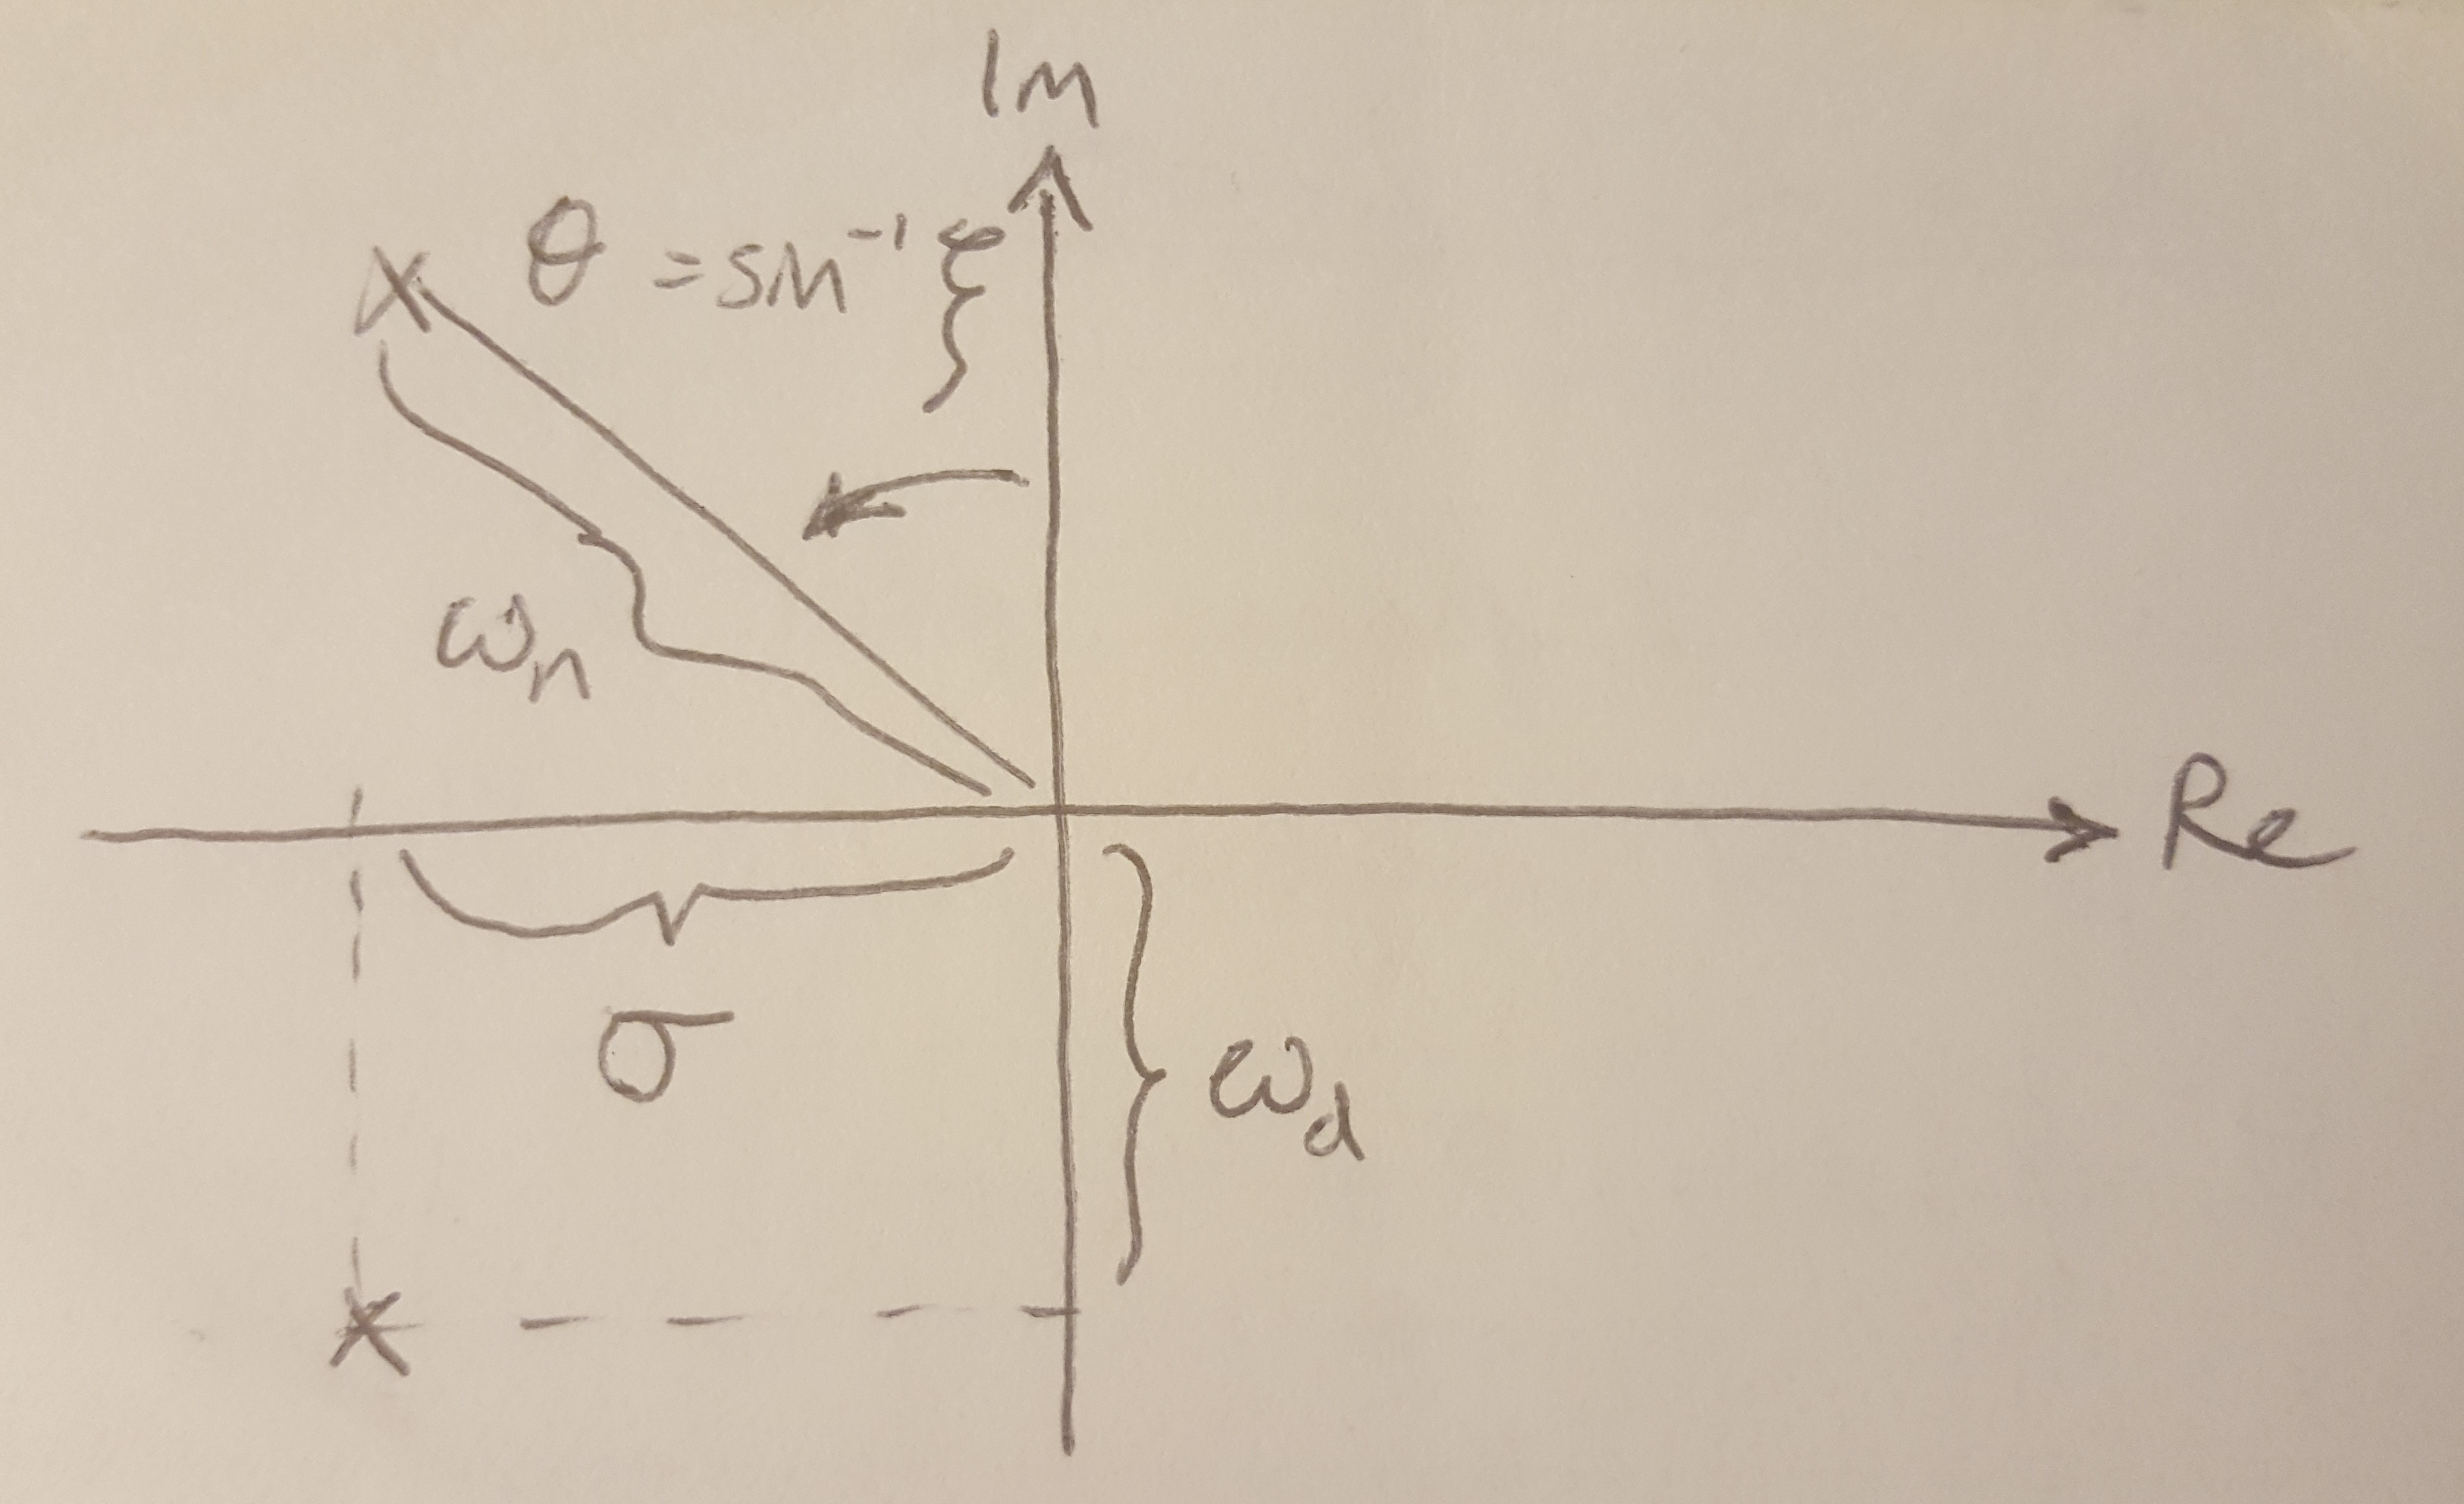 Im
θ = sin⁻¹ ξ
ωn
Re
σ
ωd